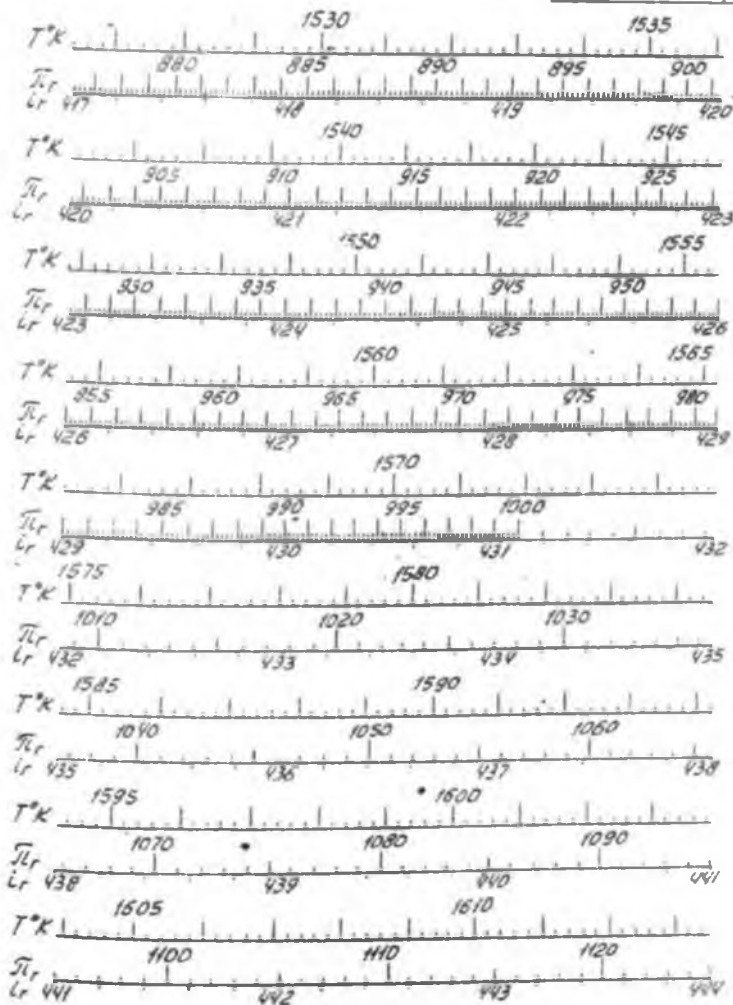 1530 1535
T°K
880 885 890 895 900
πr
ir 417 418 419 420
1540 1545
T°K
905 910 915 920 925
πr
ir 420 421 422 423
1550 1555
T°K
930 935 940 945 950
πr
ir 423 424 425 426
1560 1565
T°K
955 960 965 970 975 980
πr
ir 426 427 428 429
1570
T°K
985 990 995 1000
πr
ir 429 430 431 432
1575 1580
T°K
1010 1020 1030
πr
ir 432 433 434 435
1585 1590
T°K
1040 1050 1060
πr
ir 435 436 437 438
1595 1600
T°K
1070 1080 1090
πr
ir 438 439 440 441
1605 1610
T°K
1100 1110 1120
πr
ir 441 442 443 444